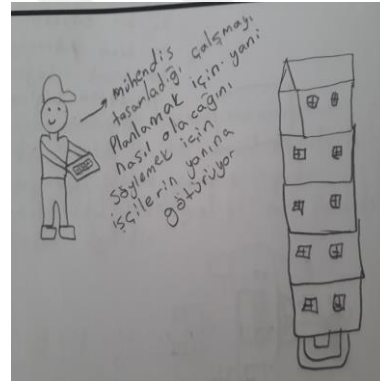 mühendis
tasarladığı çalışmayı
Planlamak için yani
nasıl olacağını
söylemek için
işçilerin yanına
götürüyor